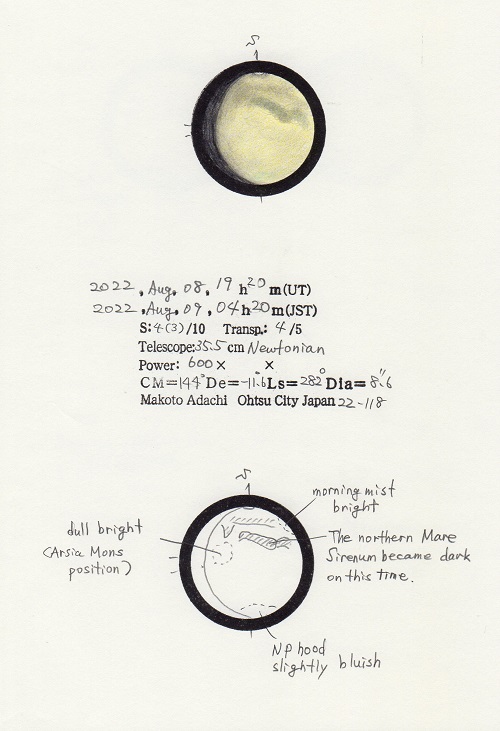 S
2022, Aug, 08, 19 h 20 m (UT)
2022, Aug, 09, 04 h 20 m (JST)
S: 4 (3) /10 Transp.: 4 /5
Telescope: 35.5 cm Newtonian
Power: 600 × ×
CM=144° De=-11.6° Ls=282° Dia=8.″6
Makoto Adachi Ohtsu City Japan 22-118
S
morning mist
bright
dull bright
(Arsia Mons
position)
The northern Mare
Sirenum became dark
on this time.
NP hood
slightly bluish